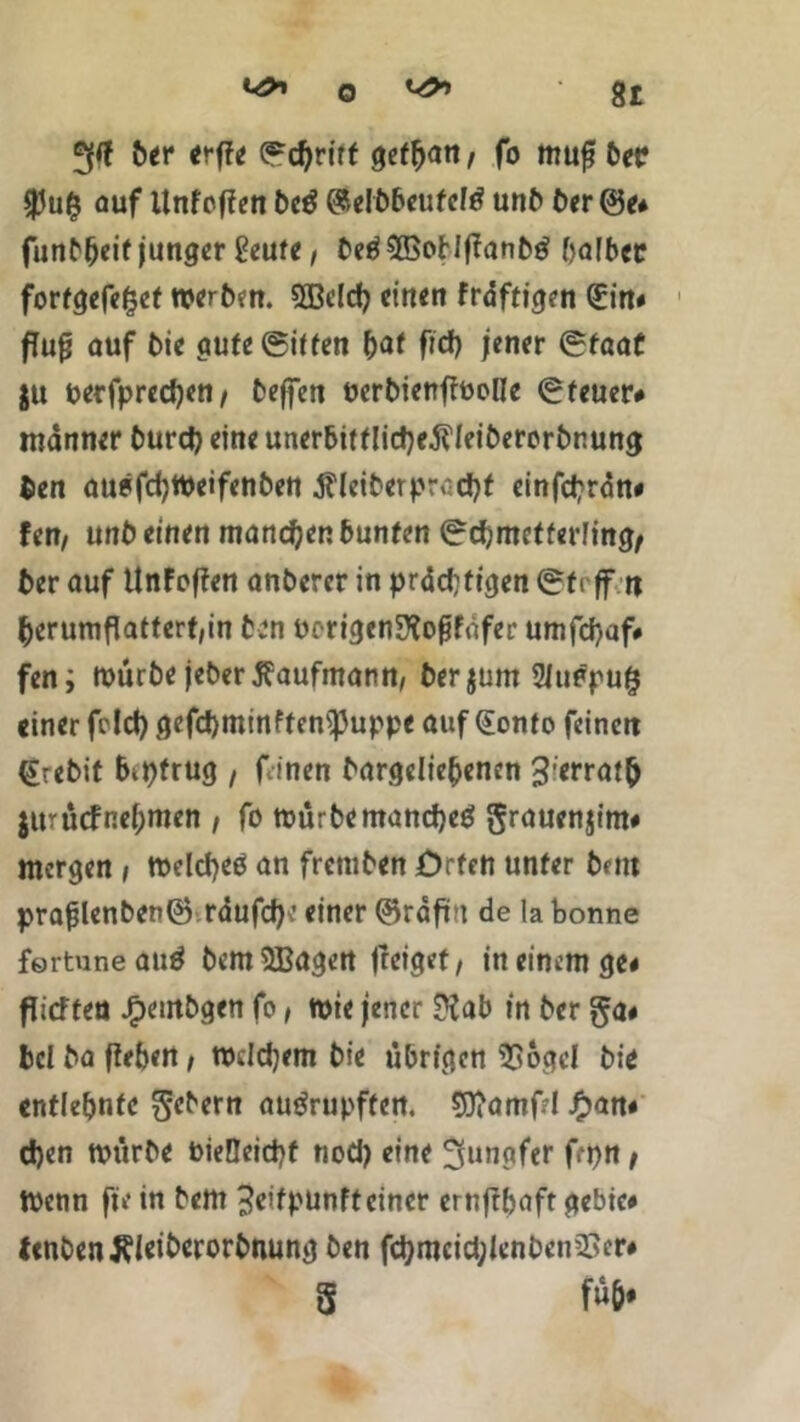 o 81
Ist der erste Schritt gethan, so muß der
Putz auf Unkosten des Geldbeutels und der Ge-
sundheit junger Leute, des Wohlstands halber
fortgesetzet werden. Welch einen kräftigen Ein-
fluß auf die gute Sitten hat sich jener Staat
zu versprechen, dessen verdienstvolle Steuer-
männer durch eine unerbittliche Kleiderordnung
den ausschweifenden Kleiderpracht einschrän-
ken, und einen manchen bunten Schmetterling,
der auf Unkosten anderer in prächtigen Stoffen
herumflattert, in den vorigen Roßkäfer umschaf-
fen; würde jeder Kaufmann, der zum Ausputz
einer solch geschminkten Puppe auf Conto seinen
Credit beytrug, seinen dargeliehenen Zierrath
zurücknehmen, so würde manches Frauenzim-
mergen, welches an fremden Orten unter dem
praßlenden Geräusche einer Gräfin de la bonne
fortune aus dem Wagen steiget, in einem ge-
flickten Hembgen so, wie jener Rab in der Fa-
bel da stehen, welchem die übrigen Vögel die
entlehnte Federn ausrupften. Mamsel Han-
chen würde vielleicht noch eine Jungfer seyn,
wenn sie in dem Zeitpunkt einer ernsthaft gebie-
tenden Kleiderordnung den schmeichlenden Ver-
F füh-